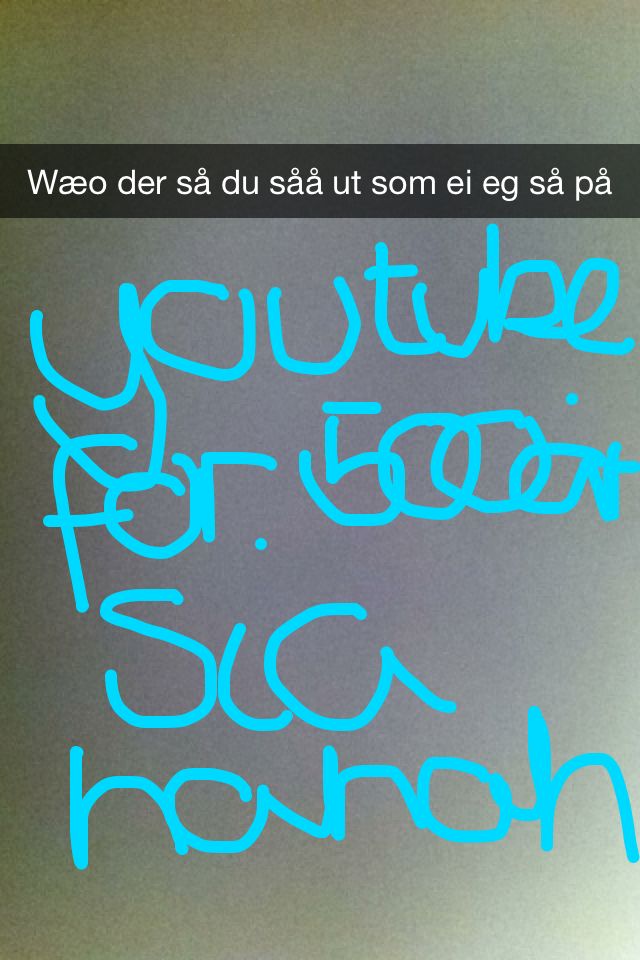 Wæo der så du såå ut som ei eg så på
youtube
for. 5000år
Sia